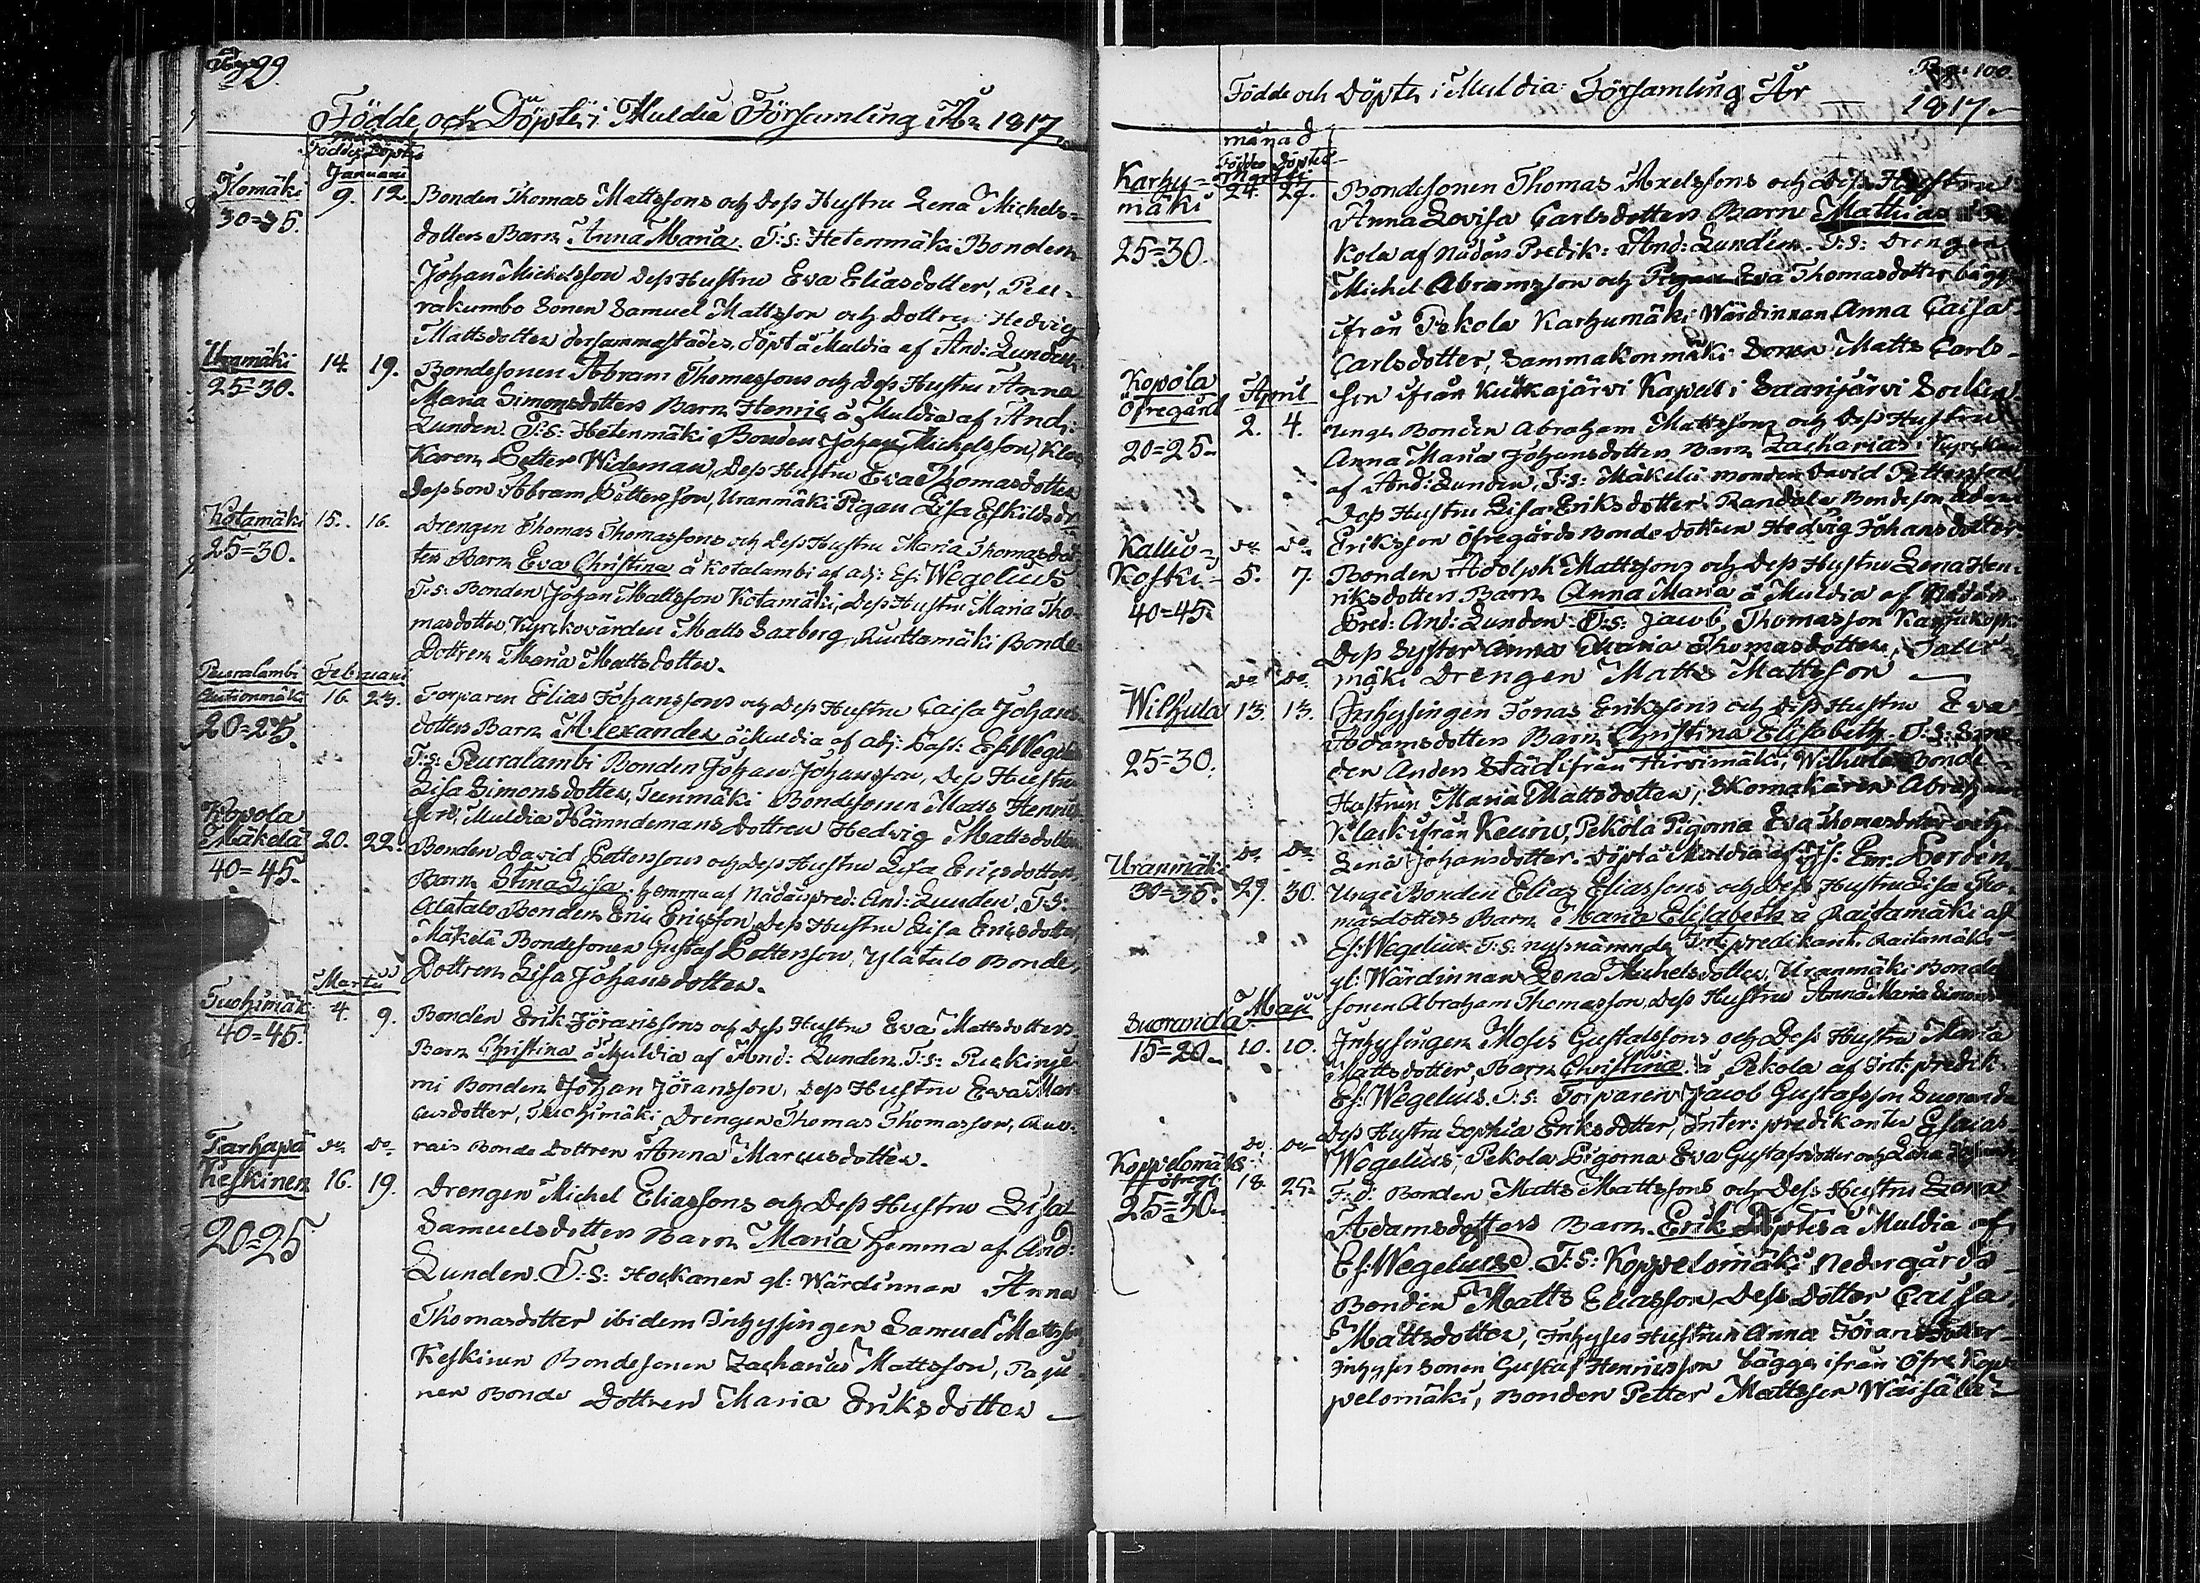 Pag. 99.
Födde och Döpte i Muldia Församling År 1817.
månad
Födde Döpte
Januarii
Ilomäki 9. 12. Bonden Thomas Mattssons och Dess Hustru Lena Michels-
30=35. dotters Barn Anna Maria. T:s: Hetenmäki Bonden
Johan Michelsson Dess Hustru Eva Eliasdotter, Peu-
rakumbo Sonen Samuel Mattsson och Dottren Hedvig
Mattsdotter dersammastädes, döpt å Muldia af And: Lunden.
Uramäki 14. 19. Bondesonen Abram Thomassons och Dess Hustru Anna
25=30. Maria Simonsdotters Barn Henric å Muldia af And:
Lunden. T:s: Hetenmäki Bonden Johan Michelsson, Kloc-
Karen Petter Wideman, Dess Hustru Eva Thomasdotter
dess son Abram Pettersson, Uranmäki Pigan Lisa Eskilsdr
Kotamäki 15. 16. Drengen Thomas Thomassons och Dess Hustru Maria Thomasdot
25=30. ters Barn Eva Christina å Kotalambi af adj: Es: Wegelius
T:s: Bonden Johan Mattsson Kotamäki, Dess Hustru Maria Tho-
masdotter, Kyrckovärden Matts Saxberg, Ruuttamäki Bonde-
Dottren Maria Mattsdotter.
Peuralambi Februarii
16. 23. Torparen Elias Johanssons och Dess Hustru Caisa Johans
20=25. dotters Barn Alexander å Muldia af adj: Past: Es: Wegelius
T:s: Peuralambi Bonden Johan Johansson, Dess Hustru
Lisa Simonsdotter, Teenmäki Bondesonen Matts Henrics
son, Muldia Nämndemans Dottren Hedvig Mattsdotter
Kopola
Mäkelä 20. 22. Bonden David Petterssons och Dess Hustru Lisa Ericsdotters
40=45. Barn Stina Lisa, hemma af Nådårspred: And: Lunden. T:S:
Alatalo Bonden Eric Ericsson, Dess Hustru Lisa Ericsdotter
Mäkelä Bondesonen Gustaf Pettersson, Ylätalo Bonde-
Dottren Lisa Johansdotter.
Martii
Suohimäki 4. 9. Bonden Erik Jöranssons och Dess Hustru Eva Mattsdotters
40=45. Barn Christina å Muldia af And: Lunden. T:s: Puckinje
mi Bonden Johan Jöransson, Dess Hustru Eva Mar-
cusdotter, Suohimäki Drengen Thomas Thomasson, Auv-
Tarhapä do do rais Bonde Dottren Anna Marcusdotter.
Keskinen 16. 19. Drengen Michel Eliassons och Dess Hustru Lisa
20=25 Samuelsdotters Barn Maria hemma af And:
Lunden. T:S: Hockanen gl: Wärdinnan Anna
Thomasdotter ibidem Inhysingen Samuel Mattsson
Keskinen Bondesonen Zacharias Mattsson, Paju-
nen Bonde Dottren Maria Eriksdotter
Pag: 100.
Födde och Döpte i Muldia Församling År 1817.
månad
Födde Döpte
Martii
Karhu- 24. 27. Bondesonen Thomas Axelssons och Dess Hustru
mäki Anna Lovisa Carlsdotters Barn Mathias
25=30. kola af Nådårs Predik: And: Lunden. T:s: Drengen
Michel Abramsson och Pigan Eva Thomasdotter bägge
ifrån Pekola Karhumäki Wärdinnan Anna Caisa
Carlsdotter, Sammakonmäki Sonen Matts Carls-
Kopola April son ifrån Kuckajärvi Kapell i Saarijärvi Socken
Öfregård 2. 4. Unga Bonden Abraham Mattssons och Dess Hustru
20=25. Anna Maria Johansdotters Barn Zacharias
af And: Lunden, T:s: Mäkelä Bonden David Pettersson
Dess Hustru Lisa Eriksdotter. Bondeson
Kalliv- do do Eriksson Öfregårds Bonde Dottren Hedvig Johansdotter.
Koski- 5. 7. Bonden Adolph Mattssons och Dess Hustru Lena Hen-
40=45. riksdotters Barn Anna Maria å Muldia af Nådårs
Pred: And: Lunden. T:s: Jacob Thomasson
Dess Syster Anna Maria Thomasdotter,
do do mäki Drengen Matts Mattsson
Wilhula 13. 13. Inhysingen Jonas Erikssons och Dess Hustru Eva
Adamsdotters Barn Christina Elisabeth. T:s:
25=30. den Anders Städ ifrån Hirvimäki, Wilhula Bonde
Hustrun Maria Mattsdotter, Skomakaren Abraham
Klack ifrån Keuru, Pekola Pigorna Eva Thomasdotter och
Uranmäki do do Lena Johansdotter. Döpt å Muldia af
30=35. 29. 30. Unge Bonden Elias Eliassons och Dess Hustru Lisa Tho-
masdotters Barn Maria Elisabeth å Raitamäki af
Es: Wegelius T:s: nyssnämnde Int: predikant. Raitamäki
gl: Wärdinnan Lena Michelsdotter, Uranmäki Bonde
Maji sonen Abraham Thomasson, Dess Hustru Anna Maria Simons
Suoranda 10. 10. Inhysingen Moses Gustafssons och Dess Hustru Maria
15=20. Mattsdotters Barn Christina å Pekola af Int: predik
Es: Wegelius. T:s: Torparen Jacob Gustafsson Suoranda
Dess Hustru Sophia Eriksdotter, Inter: predikanten Esaias
do do Wegelius, Pekola Pigorna Eva Gustafsdotter och Lena
Koppelomäki 18. 25. F: d: Bonden Matts Mattssons och Dess Hustru Lena
öfregl:
25=30. Adamsdotters Barn Erik Döptes å Muldia af
Es: Wegelius. T:S: Koppelomäki Nedergårds
Bonden Matts Eliasson, Dess Dotter Caisa
Mattsdotter, Inhyses Hustrun Anna Jöransdotter
Inhyses Sonen Gustaf Henricsson bägge ifrån Öfre Kop-
pelomäki, Bonden Petter Mattsson Wäisälä